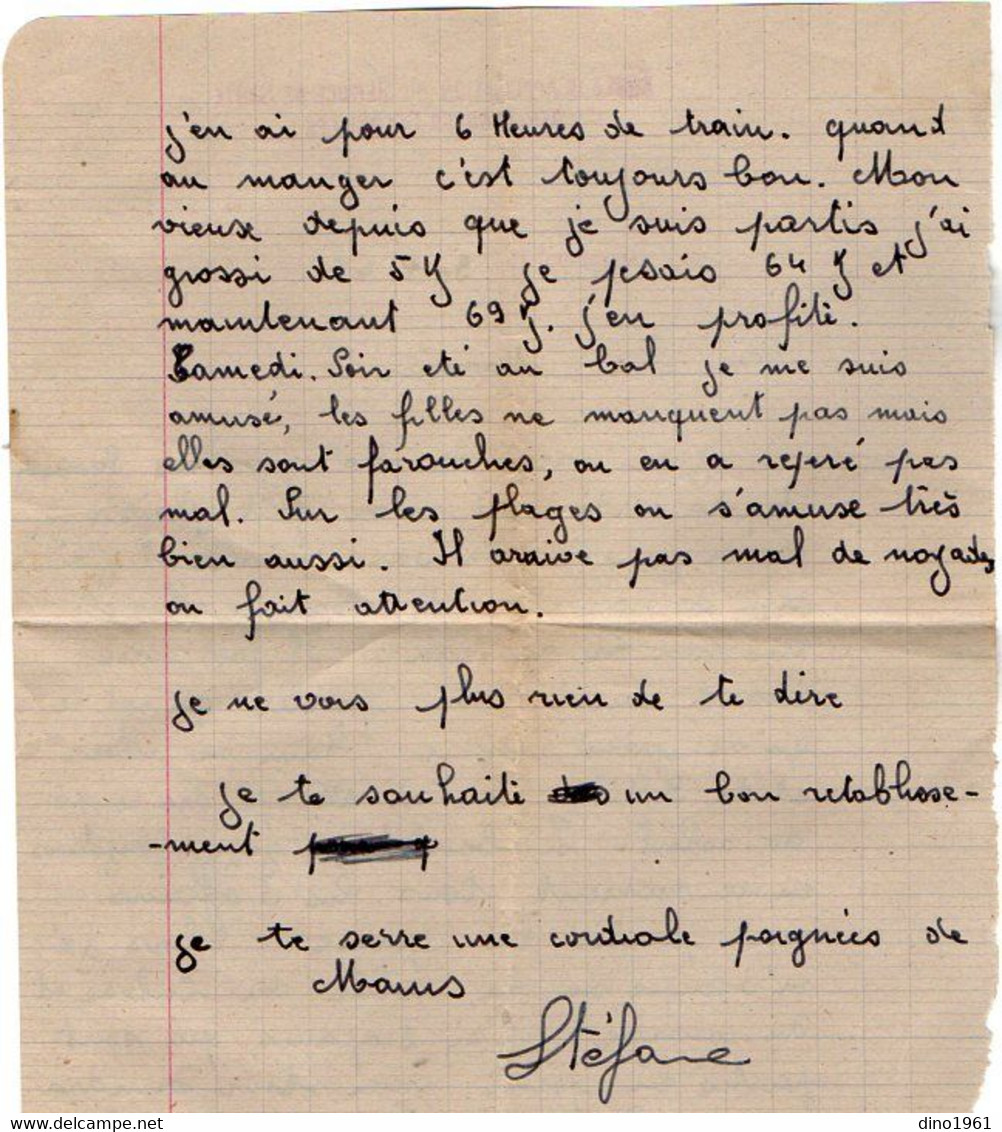 j'en ai pour 6 Heures de train. quand
au manger c'est toujours bon. Mon
vieuse depuis que je suis partis j'ai
grossi de 5 K je pesais 64 K et
maintenant 69 K. j'en profite.
Samedi. Soir eté au bal je me suis
amusé, les filles ne manquent pas mais
elles sont farouches, on en a reperé pas
mal. Sur les plages on s'amuse très
bien aussi. Il araive pas mal de noyades
on fait attention.
je ne vois plus rien de te dire
je te souhaite un bon retablisse-
-ment
je te serre une cordiale poignées de
Mains
Stéfane
dino1961